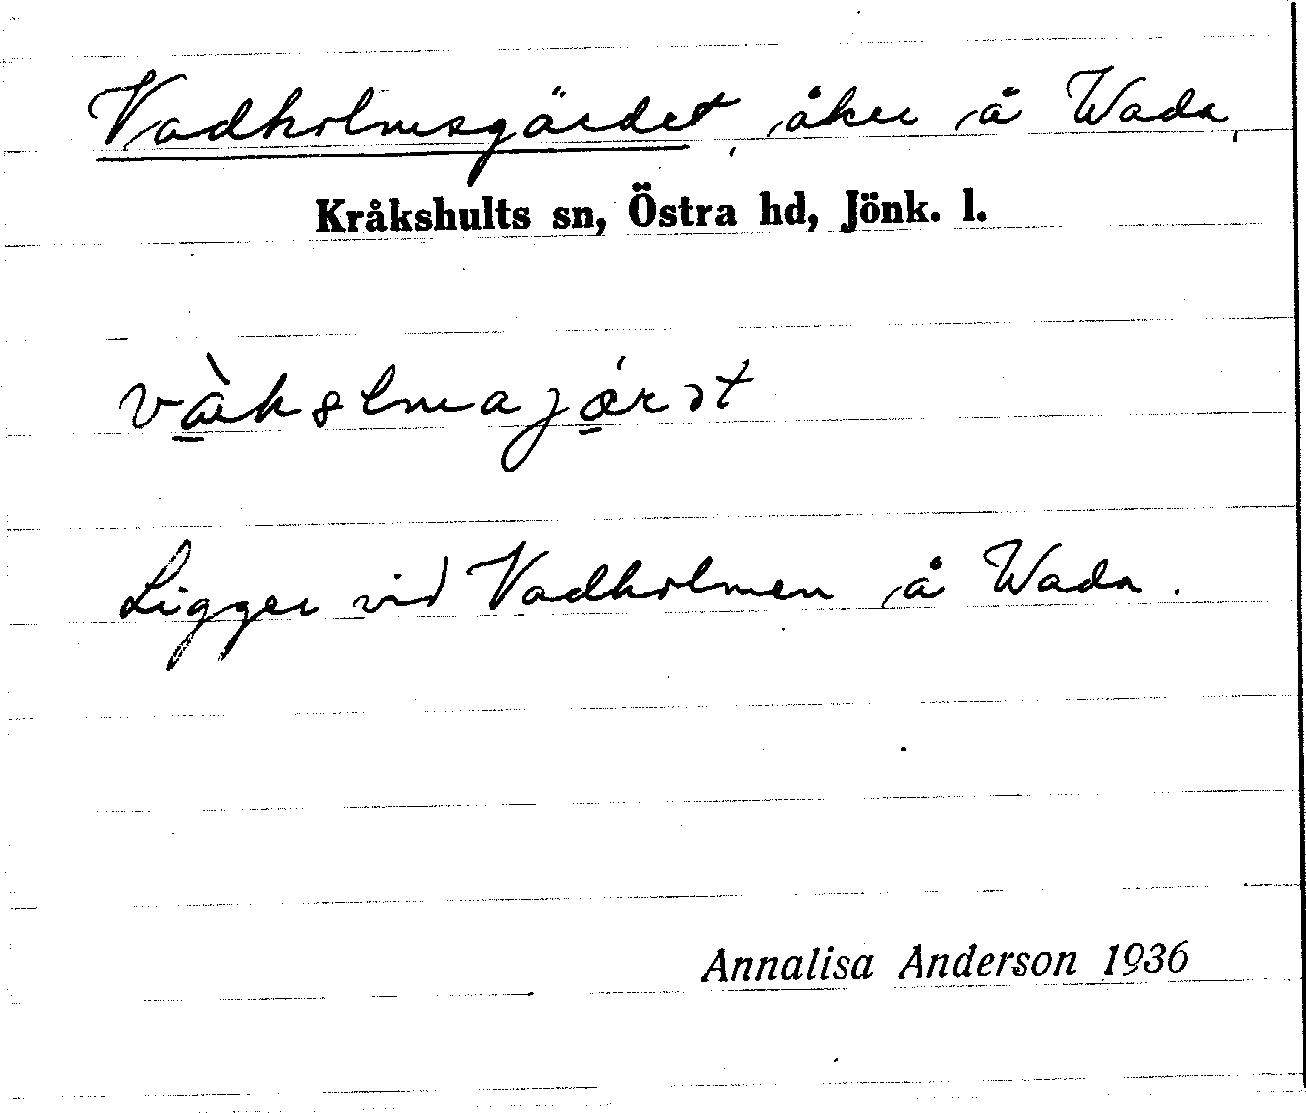 Vadholmsgärdet, åker å Wada,
Kråkshults sn, Östra hd, Jönk. l.
Ligger vid Vadholmen å Wada.
Annalisa Anderson 1936